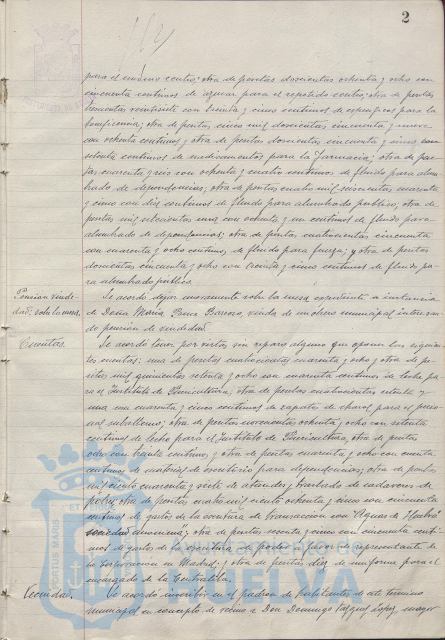 2
para el mismo centro; otra de pesetas doscientas ochenta y ocho con
cincuenta centimos de azucar para el repetido centro; otra de pesetas
trescientas veintisiete con treinta y cinco centimos de especificos para la
beneficencia; otra de pesetas cinco mil doscientas cincuenta y nueve
con ochenta centimos y otra de pesetas doscientas cincuenta y cinco con
setenta centimos de medicamentos para la Farmacia; otra de pese-
tas cuarenta y seis con ochenta y cuatro centimos de fluido para alum-
brado de dependencias; otra de pesetas cuatro mil seiscientas cuarenta
y cinco con diez centimos de fluido para alumbrado publico; otra de
pesetas mil setecientas una con ochenta y un centimos de fluido para
alumbrado de dependencias; otra de pesetas cuatrocientas cincuenta
con cuarenta y ocho centimos, de fluido para fuerza; y otra de pesetas
doscientas cincuenta y ocho con treinta y cinco centimos de fluido pa-
ra alumbrado publico.
Pension viude-
dad: sobre la mesa.
Se acordó dejar nuevamente sobre la mesa expediente a instancia
de Doña Maria Baroso, viuda de un obrero municipal interesan-
do pensión de viudedad.
Cuentas.
Se acordó pasar por vistas sin reparo alguno que oponer las siguien-
tes cuentas: una de pesetas cuatrocientas cuarenta y ocho y otra de pe-
setas mil quinientas setenta y ocho con cuarenta centimos de leche pa-
ra el Instituto de Puericultura; otra de pesetas cuatrocientas setenta y
una con cuarenta y cinco centimos de zapatos de charol para el perso-
nal subalterno; otra de pesetas novecientas ochenta y ocho con setenta
centimos de leche para el Instituto de Puericultura; otra de pesetas
ocho con treinta centimos y otra de pesetas cuarenta y ocho con cuenta
centimos de material de escritorio para dependencias; otra de pesetas
mil ciento cuarenta y siete de ataudes y traslado de cadaveres de
pobres; otra de pesetas cuatro mil ciento ochenta y cinco con cincuenta
centimos de gastos de la escritura de transaccion con "Aguas de Huelva
sociedad anonima"; otra de pesetas sesenta y cinco con cincuenta centi-
mos de gastos de la escritura de poder a favor de representante de
la Corporacion en Madrid; y otra de pesetas diez de uniforme para el
encargado de la Centralilla.
Vecindad.
Se acordó inscribir en el padron de habitantes de este termino
municipal en concepto de vecino a Don Domingo Vazquez Lopez, mayor
PORTUS MARIS
HUELVA